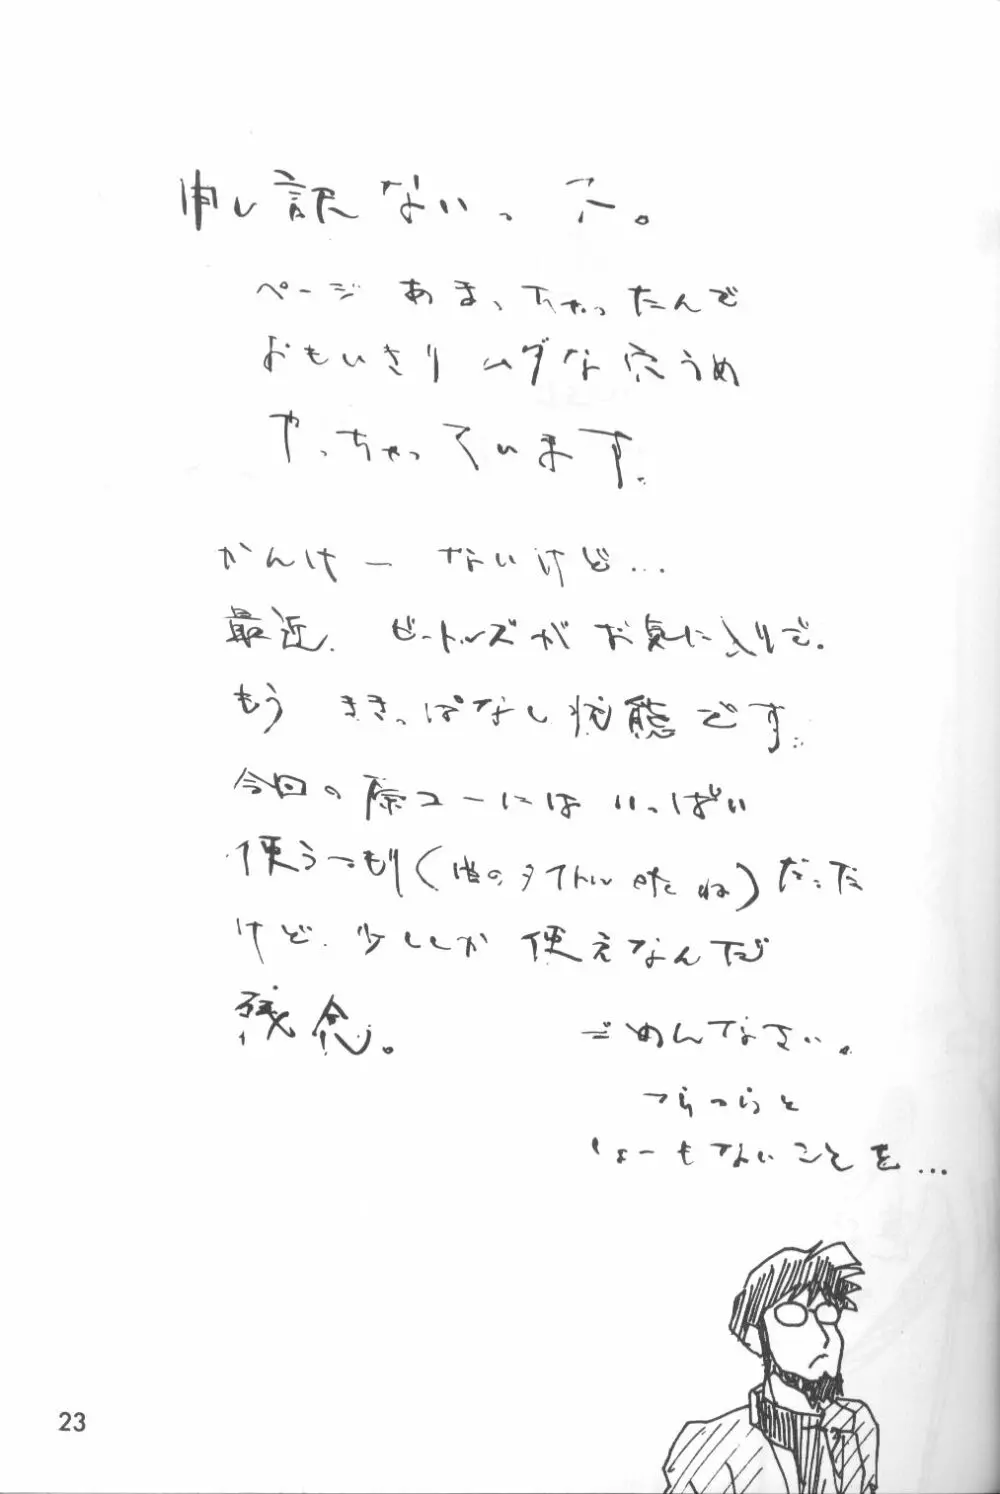 申し訳ないっス。
ページ あまっちゃったんで
おもいきりムダな穴うめ
やっちゃっています。
かんけーないけど…
最近、ビートルズがお気に入りで。
もう ききっぱなし状態です。
今回の原コーにはいっぱい
使うつもり(曲のタイトルをね)だった
けど、少ししか使えなんだ
残念。
ごめんなさい。
つらつらと
しょーもないことを…
23